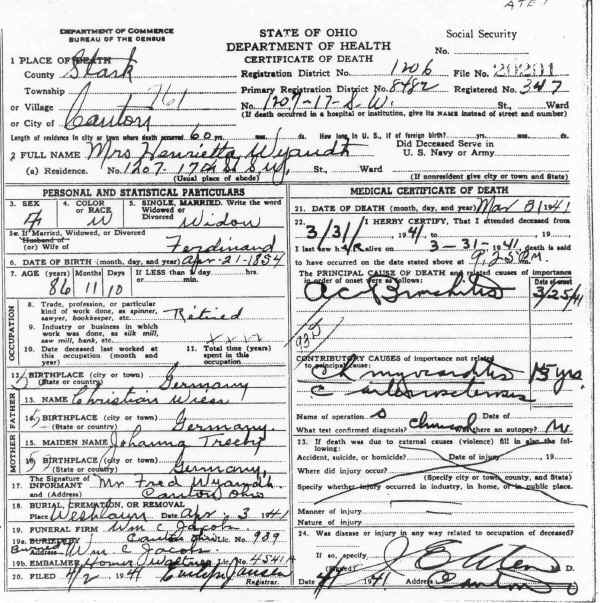 DEPARTMENT OF COMMERCE
BUREAU OF THE CENSUS
STATE OF OHIO
DEPARTMENT OF HEALTH
CERTIFICATE OF DEATH
Social Security
No.
1 PLACE OF DEATH
County Stark
Registration District No. 1206 File No. 20201
Township 761
Primary Registration District No. 8482 Registered No. 347
or Village
No. 1207-17-S.W. St., Ward
(If death occurred in a hospital or institution, give its NAME instead of street and number)
or City of Canton
Length of residence in city or town where death occurred 60 yrs. mos. ds. How long in U. S., if of foreign birth? yrs. mos. ds.
2 FULL NAME Mrs Henrietta Wyandt
Did Deceased Serve in
U. S. Navy or Army
(a) Residence. No. 1207-17th St SW St., Ward
(Usual place of abode) (If nonresident give city or town and State)
PERSONAL AND STATISTICAL PARTICULARS
3. SEX
4. COLOR or RACE W
5. SINGLE, MARRIED, Write the word
Widowed or Divorced
Widow
5a If Married, Widowed, or Divorced
Husband of
(or) Wife of Ferdinand
6. DATE OF BIRTH (month, day, and year) Apr-21-1854
7. AGE (years) Months Days If LESS than 1 day hrs.
or min.
86 11 10
OCCUPATION
8. Trade, profession, or particular
kind of work done, as spinner,
sawyer, bookkeeper, etc. Retired
9. Industry or business in which
work was done, as silk mill,
saw mill, bank, etc.
10. Date deceased last worked at
this occupation (month and
year)
11. Total time (years)
spent in this
occupation
12. BIRTHPLACE (city or town)
(State or country) Germany
FATHER
13. NAME Christian Wiess
14. BIRTHPLACE (city or town)
(State or country) Germany.
MOTHER
15. MAIDEN NAME Johanna
16. BIRTHPLACE (city or town)
(State or country) Germany,
17 The Signature of
INFORMANT Mr Fred Wyandt
and (Address) Canton Ohio
18 BURIAL, CREMATION, OR REMOVAL
Place Westlawn Date Apr. 3 1941
19. FUNERAL FIRM Wm C Jacobs
19a. Address Canton Ohio Lic. No. 939
Wm C Jacobs
19b EMBALMER Homer Lic. No. 4541A
20. FILED 4/2 1941 Registrar.
MEDICAL CERTIFICATE OF DEATH
21. DATE OF DEATH (month, day, and year) Mar 31 1941
22. I HEREBY CERTIFY, That I attended deceased from
3/31/ 1941, to , 19
I last saw h alive on 3-31-1941, death is said
to have occurred on the date stated above at 9:25 P.M.
THE PRINCIPAL CAUSE OF DEATH and related causes of importance
in order of onset were as follows: Date of onset
Ac. Bronchitis 3/25/41
CONTRIBUTORY CAUSES of importance not related
to principal cause:
Ch myocarditis 15 yrs.
c arteriosclerosis
Name of operation Date of
What test confirmed diagnosis? Clinical Was there an autopsy? No
23. If death was due to external causes (violence) fill in also the fol-
lowing:
Accident, suicide, or homicide? Date of injury , 19
Where did injury occur?
(Specify city or town, county, and State)
Specify whether injury occurred in industry, in home, or in public place.
Manner of injury
Nature of injury
24. Was disease or injury in any way related to occupation of deceased?
If so, specify
(Signed) M. D.
Date 1941. Address Canton O